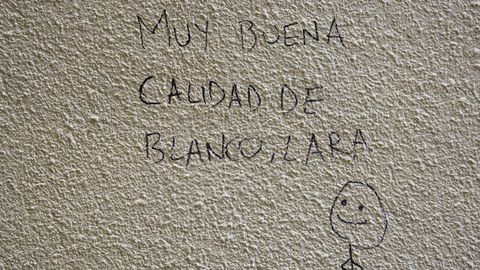 MUY BUENA
CALIDAD DE
BLANCO, LARA